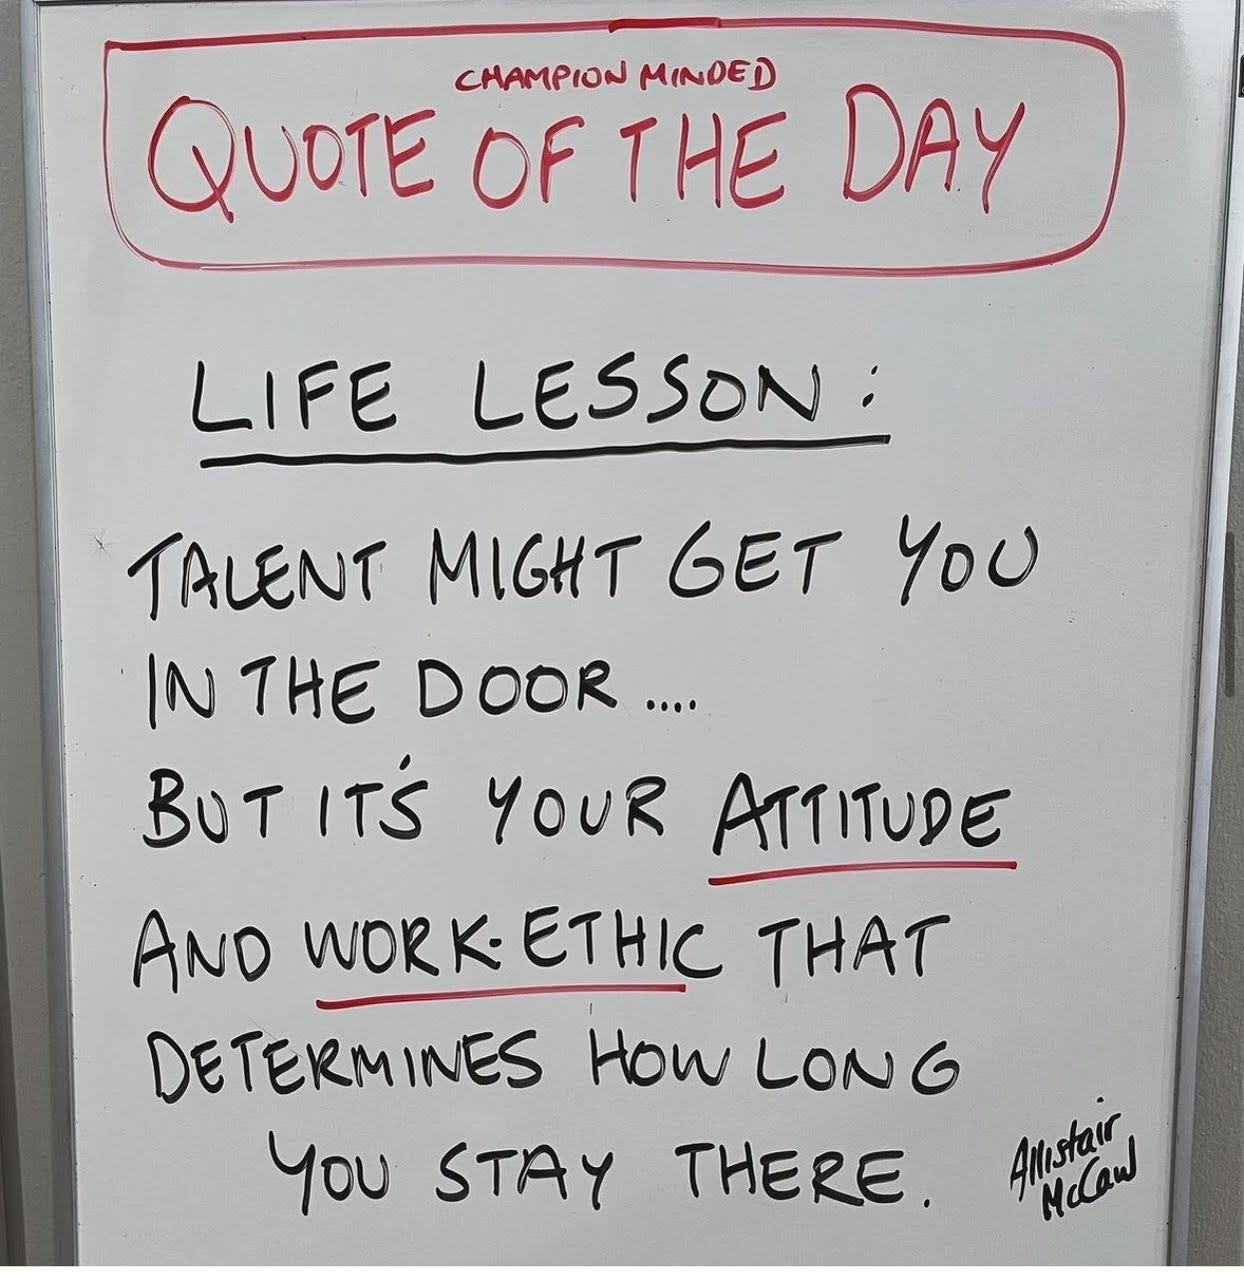 CHAMPION MINDED
QUOTE OF THE DAY
LIFE LESSON:
TALENT MIGHT GET YOU
IN THE DOOR....
BUT IT'S YOUR ATTITUDE
AND WORK-ETHIC THAT
DETERMINES HOW LONG
YOU STAY THERE.
Allistair
McCaw